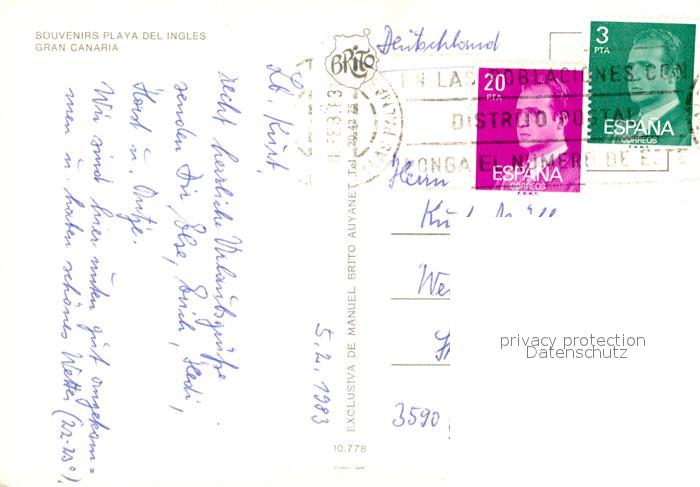 SOUVENIRS PLAYA DEL INGLES
GRAN CANARIA
BRITO
Deutschland
EN LAS POBLACIONES CON
DISTRITO POSTAL
PONGA EL NUMERO DE ESTE
20
PTA
ESPAÑA
CORREOS
F.N.M.T.
3
PTA
ESPAÑA
CORREOS
F.N.M.T.
5.2.1983
Lb. Kurt,
recht herzliche Urlaubsgrüße
senden Dir, Ilse, Erich, Hedi,
Horst u. Antje.
Wir sind hier unten gut angekom=
men u. haben schönes Wetter (22-23°).
EXCLUSIVA DE MANUEL BRITO AUYANET Tel.
10.778
Herrn
3590
privacy protection
Datenschutz